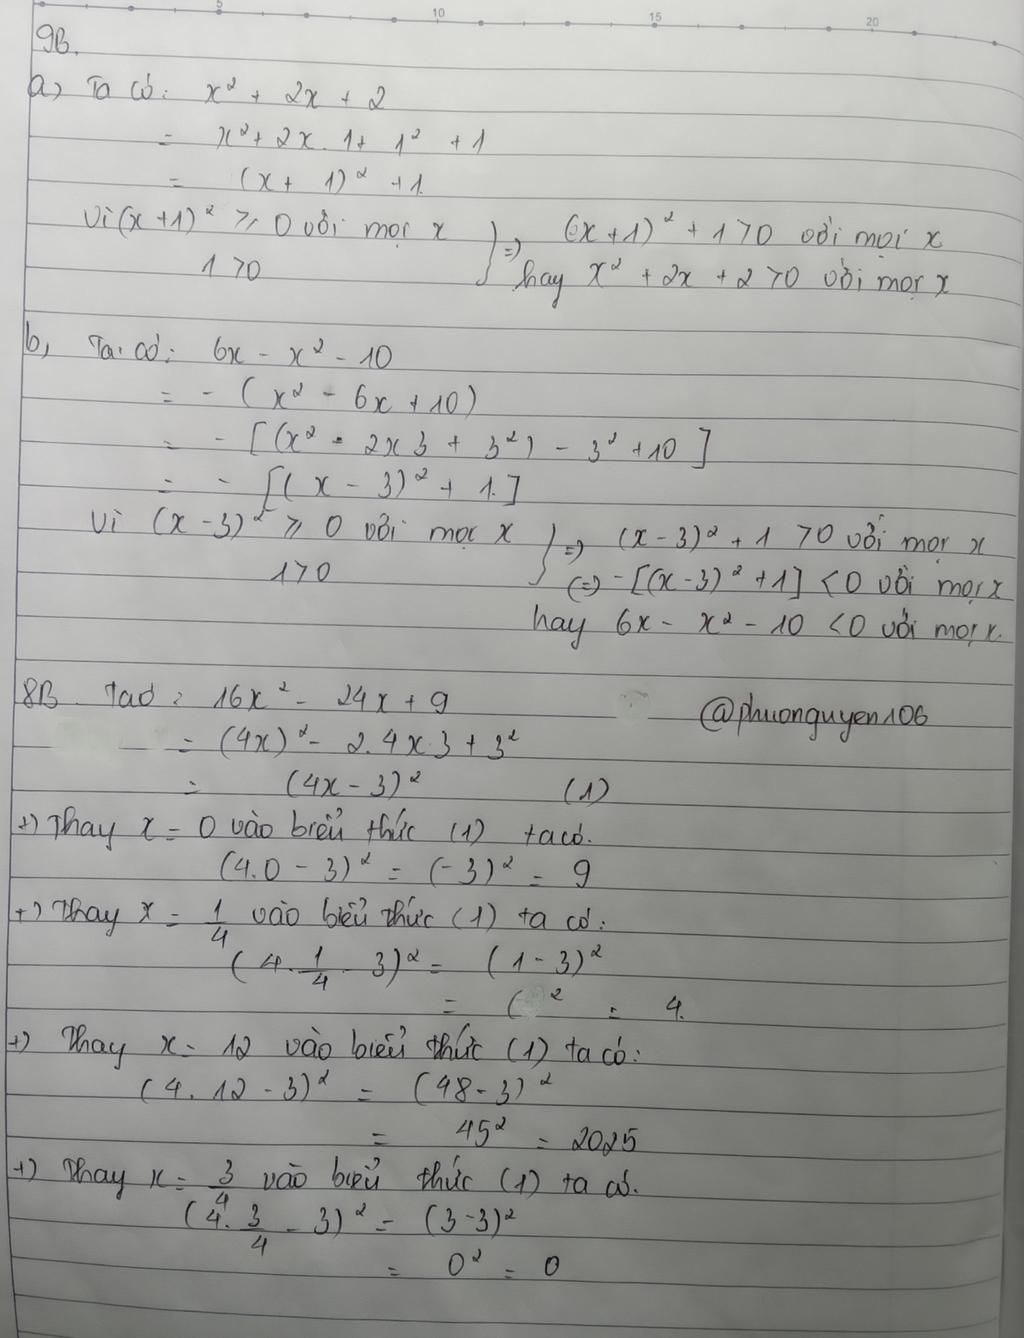 5 10 15 20
9B.
a) Ta có: x² + 2x + 2
= x² + 2x . 1 + 1² + 1
= (x + 1)² + 1.
Vì (x + 1)² ≥ 0 với mọi x } => (x + 1)² + 1 > 0 với mọi x
1 > 0 hay x² + 2x + 2 > 0 với mọi x
b, Ta có: 6x - x² - 10
= - (x² - 6x + 10)
= - [(x² - 2x3 + 3²) - 3² + 10]
= - [(x - 3)² + 1.]
Vì (x - 3)² ≥ 0 với mọi x } => (x - 3)² + 1 > 0 với mọi x
1 > 0 (=) - [(x - 3)² + 1] < 0 với mọi x
hay 6x - x² - 10 < 0 với mọi x.
8B Ta có: 16x² - 24x + 9 @phuonguyen106
= (4x)² - 2.4x.3 + 3²
= (4x - 3)² (1)
+) Thay x = 0 vào biểu thức (1) ta có.
(4.0 - 3)² = (-3)² = 9
+) Thay x = 1/4 vào biểu thức (1) ta có:
(4. 1/4 - 3)² = (1 - 3)²
= ( ² = 4.
+) Thay x = 12 vào biểu thức (1) ta có:
(4. 12 - 3)² = (48 - 3)²
= 45² = 2025
+) Thay x = 3/4 vào biểu thức (1) ta có.
(4. 3/4 - 3)² = (3 - 3)²
= 0² = 0